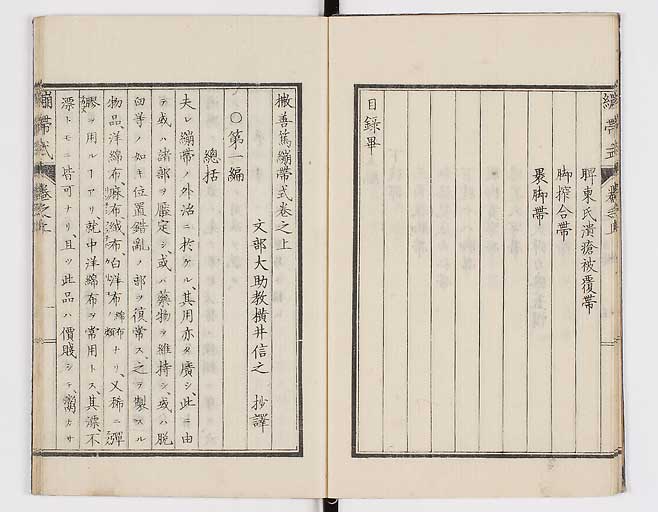 繃帶式
卷之上
脾東氏潰瘡被覆帶
脚搾合帶
裹脚帶
目錄畢
撒善篤繃帶式卷之上
文部大助教横井信之 抄譯
○第一編
總括
夫レ繃帶ノ外治ニ於ケル、其用亦タ廣シ、此ニ由
テ或ハ諸部ヲ壓定シ、或ハ藥物ヲ維持シ、或ハ脱
臼等ノ如キ位置錯亂ノ部ヲ復常ス、之ヲ製スル
物品、洋綿布麻布絨布、白洋布綿布ノ類ナリ、又稀ニ彈
ヲ用ルヿアリ、就中洋綿布ヲ常用トス、其漂、不
漂トモニ皆可ナリ、且ツ此品ハ價賤シテ、
繃帶式
卷之上
一